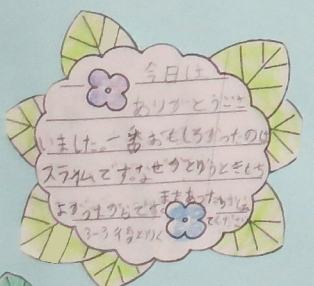 今日は
ありがとうござ
いました。一番おもしろかったのは
スライムです。なぜかとゆうときもち
よかったからです。またあったら
てください
3-3